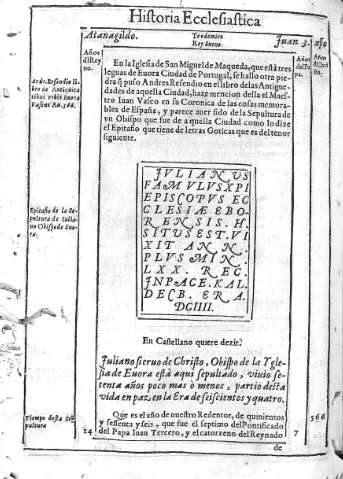 Historia Ecclesiastica
Atanagildo.
Teodomiro
Rey Sueuo.
Juan 3. xp̃o
Años
del Rey
no.
Años
del Pa
pa.
Años
de
En la Iglesia de San Miguel de Maqueda, que està tres
leguas de Euora Ciudad de Portugal, se hallo otra pie
dra q̃ puso Andres Resendio en el libro de las Antigue-
dades de aquella Ciudad, haze mencion della el Maes-
tro Iuan Vaseo en su Coronica de las cosas memora-
bles de España, y parece auer sido de la Sepultura de
vn Obispo que fue de aquella Ciudad como lo dize
el Epitafio que tiene de letras Goticas que es del tenor
siguiente.
Andr. Resendio li-
bro de Antiquita
tibus vrbis Euora
Vaseus An. 566.
IVLIANVS
FAMVLVSXPI
EPISCOPVS EC
CLESIÆ EBO
RENSIS. H.
SITVS EST. VI
XIT ANN.
PLVS MIN.
LXX. REC.
INPACE. KAL.
DECB. ERA.
DCIIII.
Epitafio de la Se-
pultura de Iulia-
no Obispo de Euo-
ra.
En Castellano quiere dezir.
Juliano sieruo de Christo, Obispo de la Ygle-
sia de Euora està aqui sepultado, viuio se-
tenta años poco mas ò menos, partio desta
vida en paz en la Era de seiscientos y quatro.
Tiempo desta Se
pultura
Que es el año de nuestro Redentor, de quinientos
y sessenta y seis, que fue el septimo del Pontificado
del Papa Iuan Tercero, y el catorzeno del Reynado
14
7
566
de